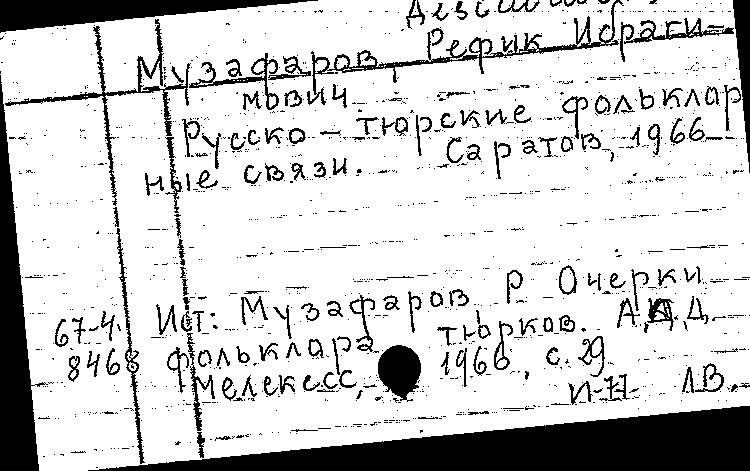 Музафаров, Рефик Ибраги-
мович
Русско-тюрские фольклар
ные связи. Саратов, 1966
67-4. Ист: Музафаров, Р Очерки
8468 фольклара тюрков. А,К,Д,
Мелекесс, 1966, с. 29
И-Н ЛВ.